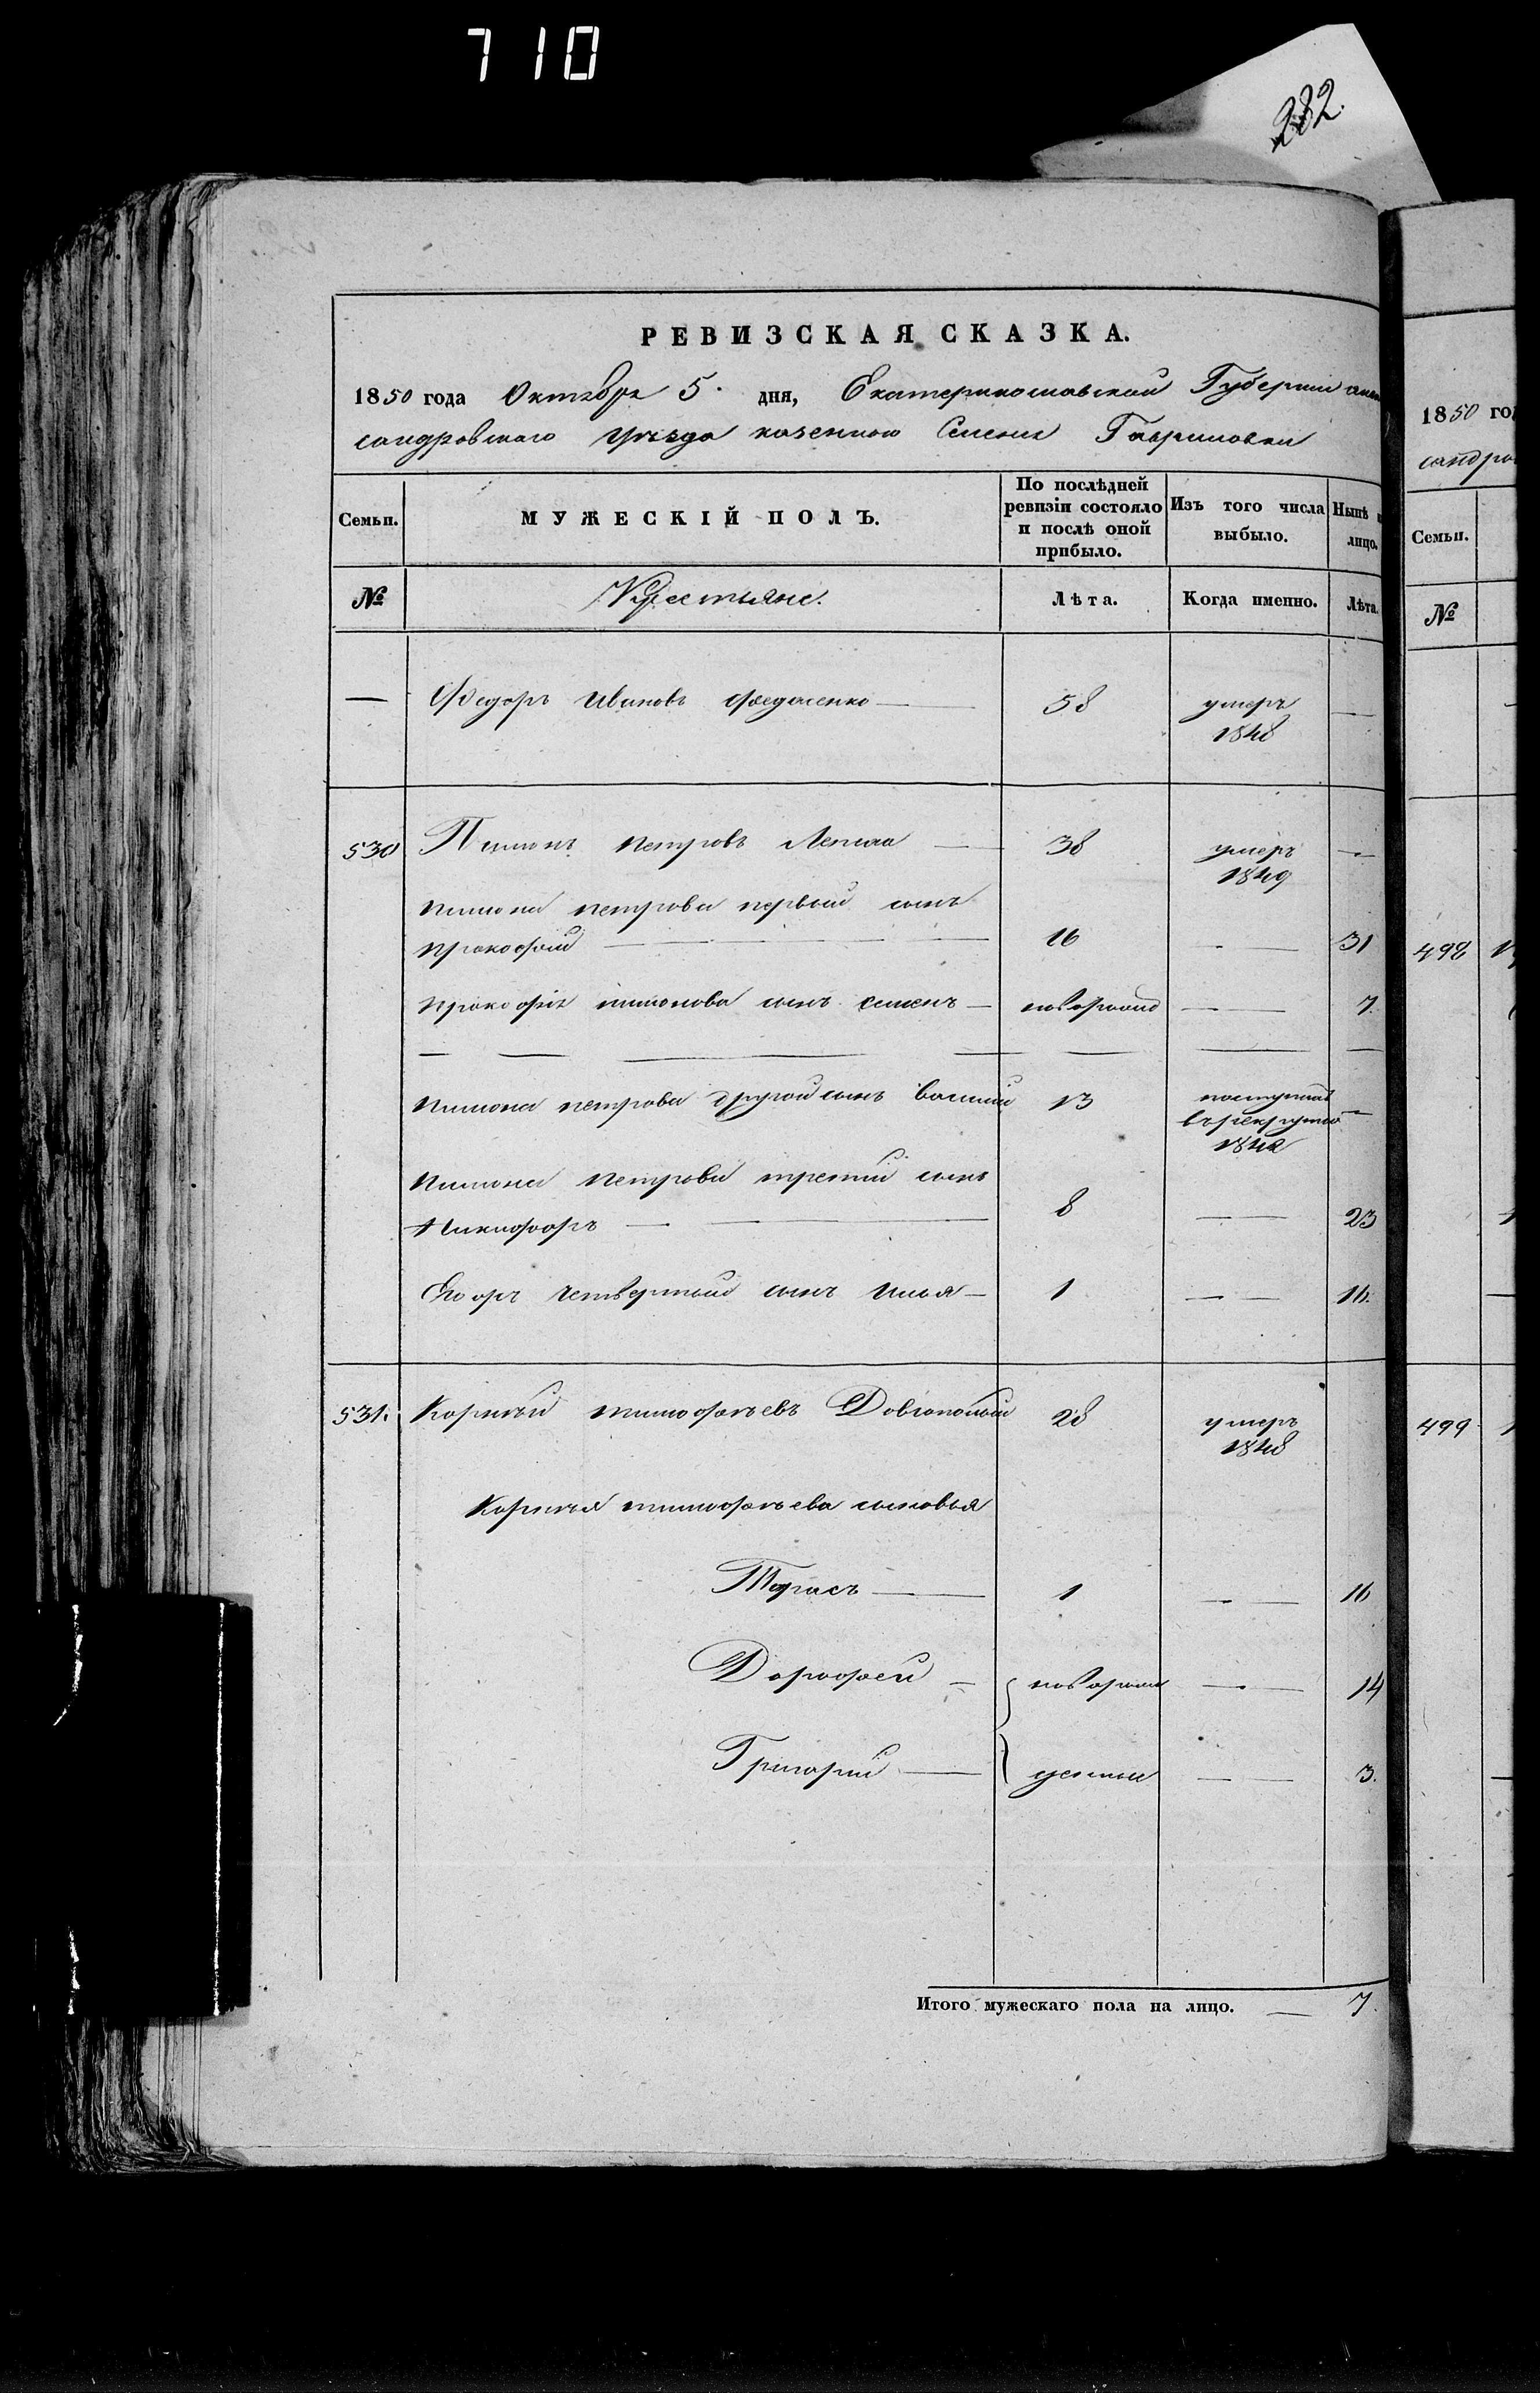 710
282.
РЕВИЗСКАЯ СКАЗКА.
1850 года Октября 5. дня, Екатеринославской Губернии Алек
сандровскаго уѣзда казеннаго Селения Гавриловки
Семьи. МУЖЕСКІЙ ПОЛЪ. По послѣдней ревизіи состояло и послѣ оной прибыло. Изъ того числа выбыло. Нынѣ н лицо.
№ Крестьяне. Лѣта. Когда именно. Лѣта.
— Федоръ Ивановъ — 58 умеръ 1848 —
530 Пимонъ Петровъ — 38 умеръ 1849 —
Пимона Петрова первый сынъ
Прокофий — 16 — 31
Прокофія Пимонова сынъ Семенъ — новорожд — 7.
Пимона Петрова другой сынъ Василий 13 поступилъ въ рекруты —
Пимона Петрова третий сынъ
Никифоръ — 8 — 23
Егоръ четвертый сынъ Илья — 1 — 16.
531. Корнѣй Тимофѣевъ Довгополый 28 умеръ 1848
Корнѣя Тимофѣева сыновья
Тарасъ — 1 — 16
Дорофей — новорож — 14
Григорий — денные — 3.
Итого мужескаго пола на лицо. — 7.
1850 го
сандров
Семьи.
№
498
499